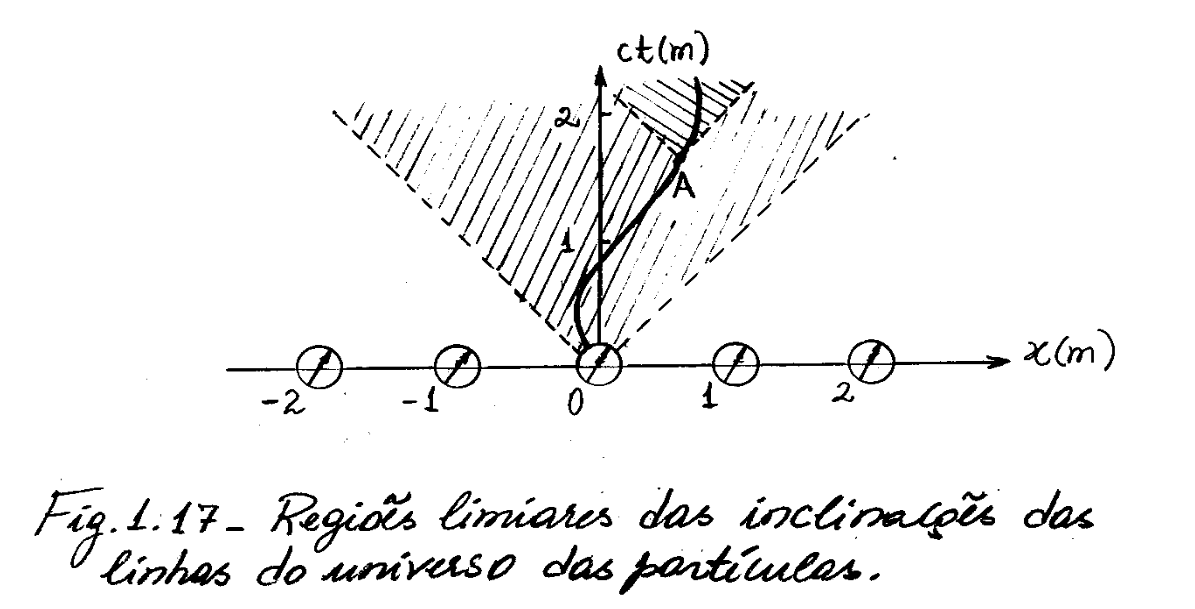 ct(m)
2
A
1
x(m)
-2 -1 0 1 2
Fig. 1.17- Regiões limiares das inclinações das
linhas do universo das partículas.